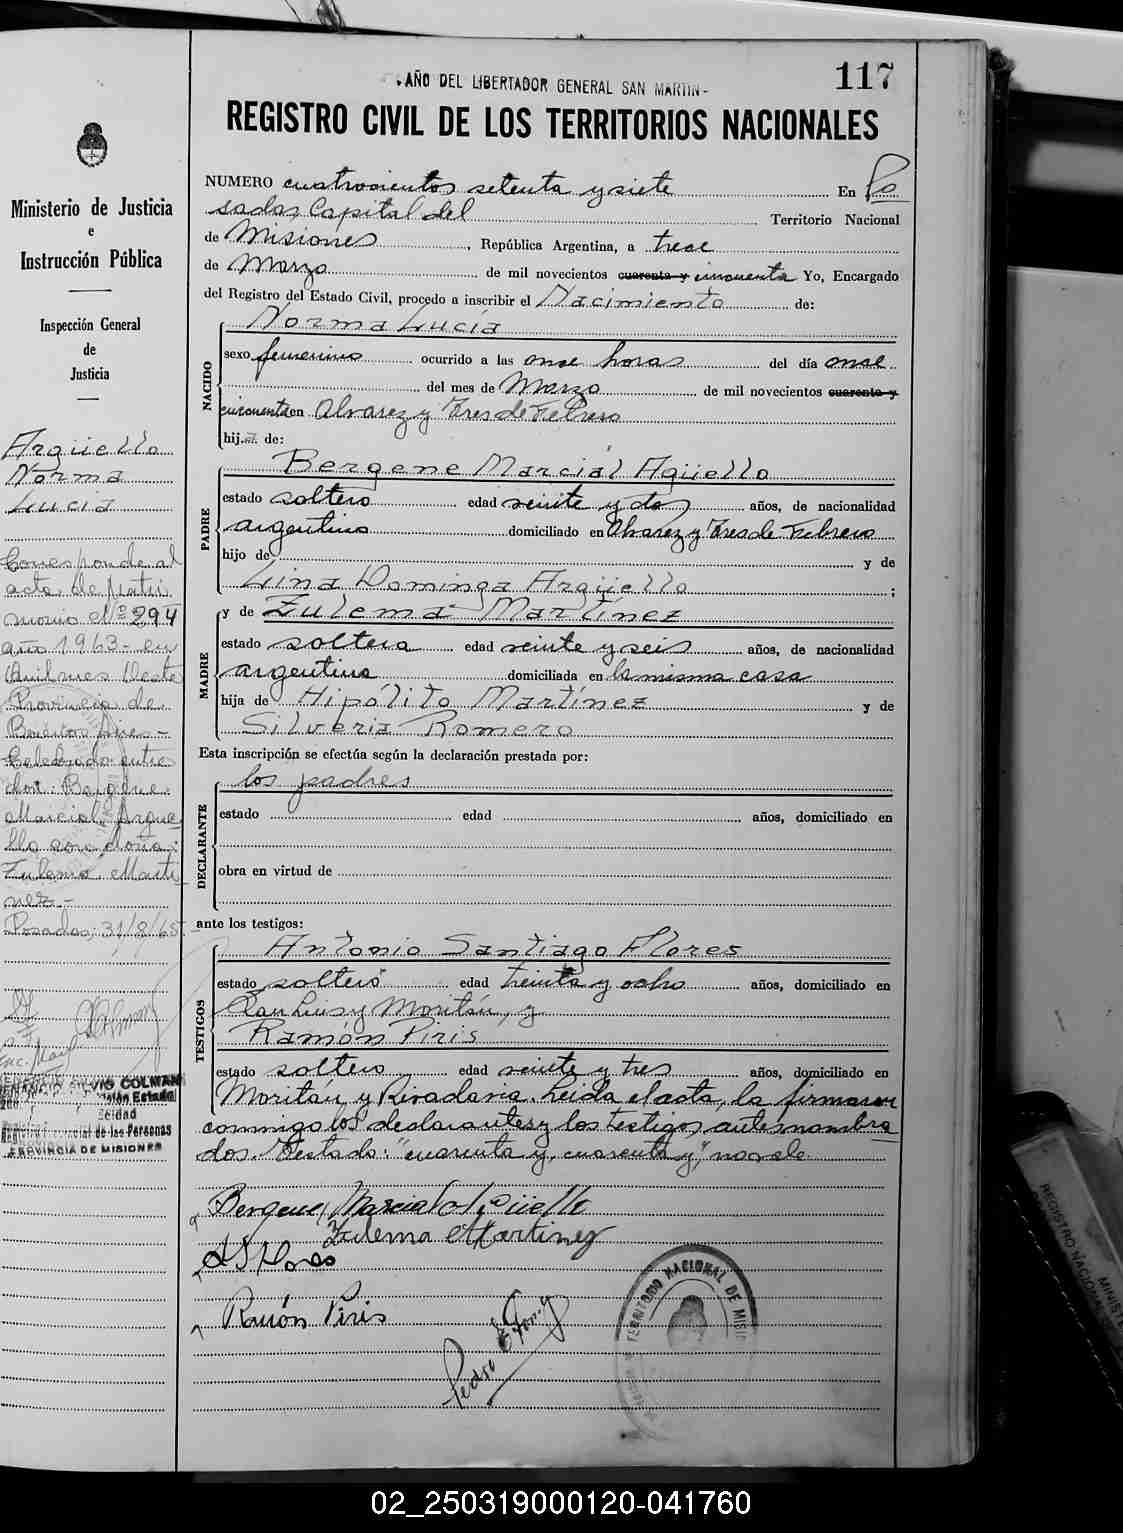 117
AÑO DEL LIBERTADOR GENERAL SAN MARTIN-
REGISTRO CIVIL DE LOS TERRITORIOS NACIONALES
Ministerio de Justicia
e
Instrucción Pública
Inspección General
de
Justicia
Argüello
Norma
Lucia
Corresponde al
acta de matri
monio el Nº 294
año 1963- en
Quilmes Oeste
Provincia de
Buenos Aires-
Celebrado entre
don: Bergene
Marcial Argue
llo con doña:
Zulema Marti
nez.-
Posadas, 31/8/65.-
COLMAN
PROVINCIA DE MISIONES
NUMERO cuatrocientos setenta y siete En Po
sadas Capital del Territorio Nacional
de Misiones, República Argentina, a trece
de Marzo de mil novecientos cuarenta y cincuenta Yo, Encargado
del Registro del Estado Civil, procedo a inscribir el Nacimiento de:
NACIDO
Norma Lucía
sexo femenino ocurrido a las once horas del día once
del mes de Marzo de mil novecientos cuarenta y
cincuenta en Alvarez y Tres de Febrero
hij.a. de:
PADRE
Bergene Marcial Agüello
estado soltero edad veinte y dos años, de nacionalidad
argentino domiciliado en Alvarez y Tres de Febrero
hijo de y de
Lina Dominga Argüello ;
MADRE
y de Zulema Martínez
estado soltera edad veinte y seis años, de nacionalidad
argentina domiciliada en la misma casa
hija de Hipólito Martínez y de
Silveria Romero
Esta inscripción se efectúa según la declaración prestada por:
DECLARANTE
los padres
estado edad años, domiciliado en
obra en virtud de
ante los testigos:
TESTIGOS
Antonio Santiago Flores
estado soltero edad treinta y ocho años, domiciliado en
San Luis y Moritán, y
Ramón Piris
estado soltero edad veinte y tres años, domiciliado en
Moritán y Rivadavia. Leída el acta, la firmaron
conmigo los declarantes y los testigos antes nombra
dos. Testado: "cuarenta y, cuarenta y", no vale
Bergene Marcial Agüello
Zulema Martinez
A S Flores
Ramón Piris
Pedro
TERRITORIO NACIONAL DE MISIO
REGISTRO NACIONAL
MINISTE
02_250319000120-041760